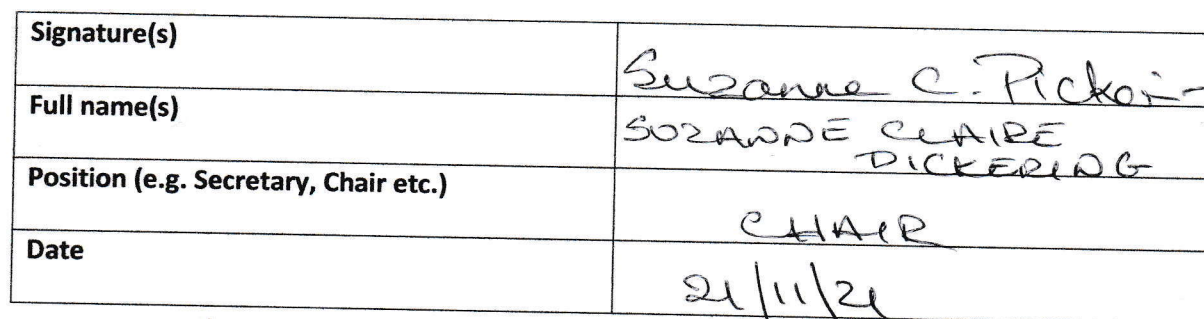 Signature(s)
Suzanne C. Pickeri
Full name(s)
SUZANNE CLAIRE
PICKERING
Position (e.g. Secretary, Chair etc.)
CHAIR
Date
21/11/21